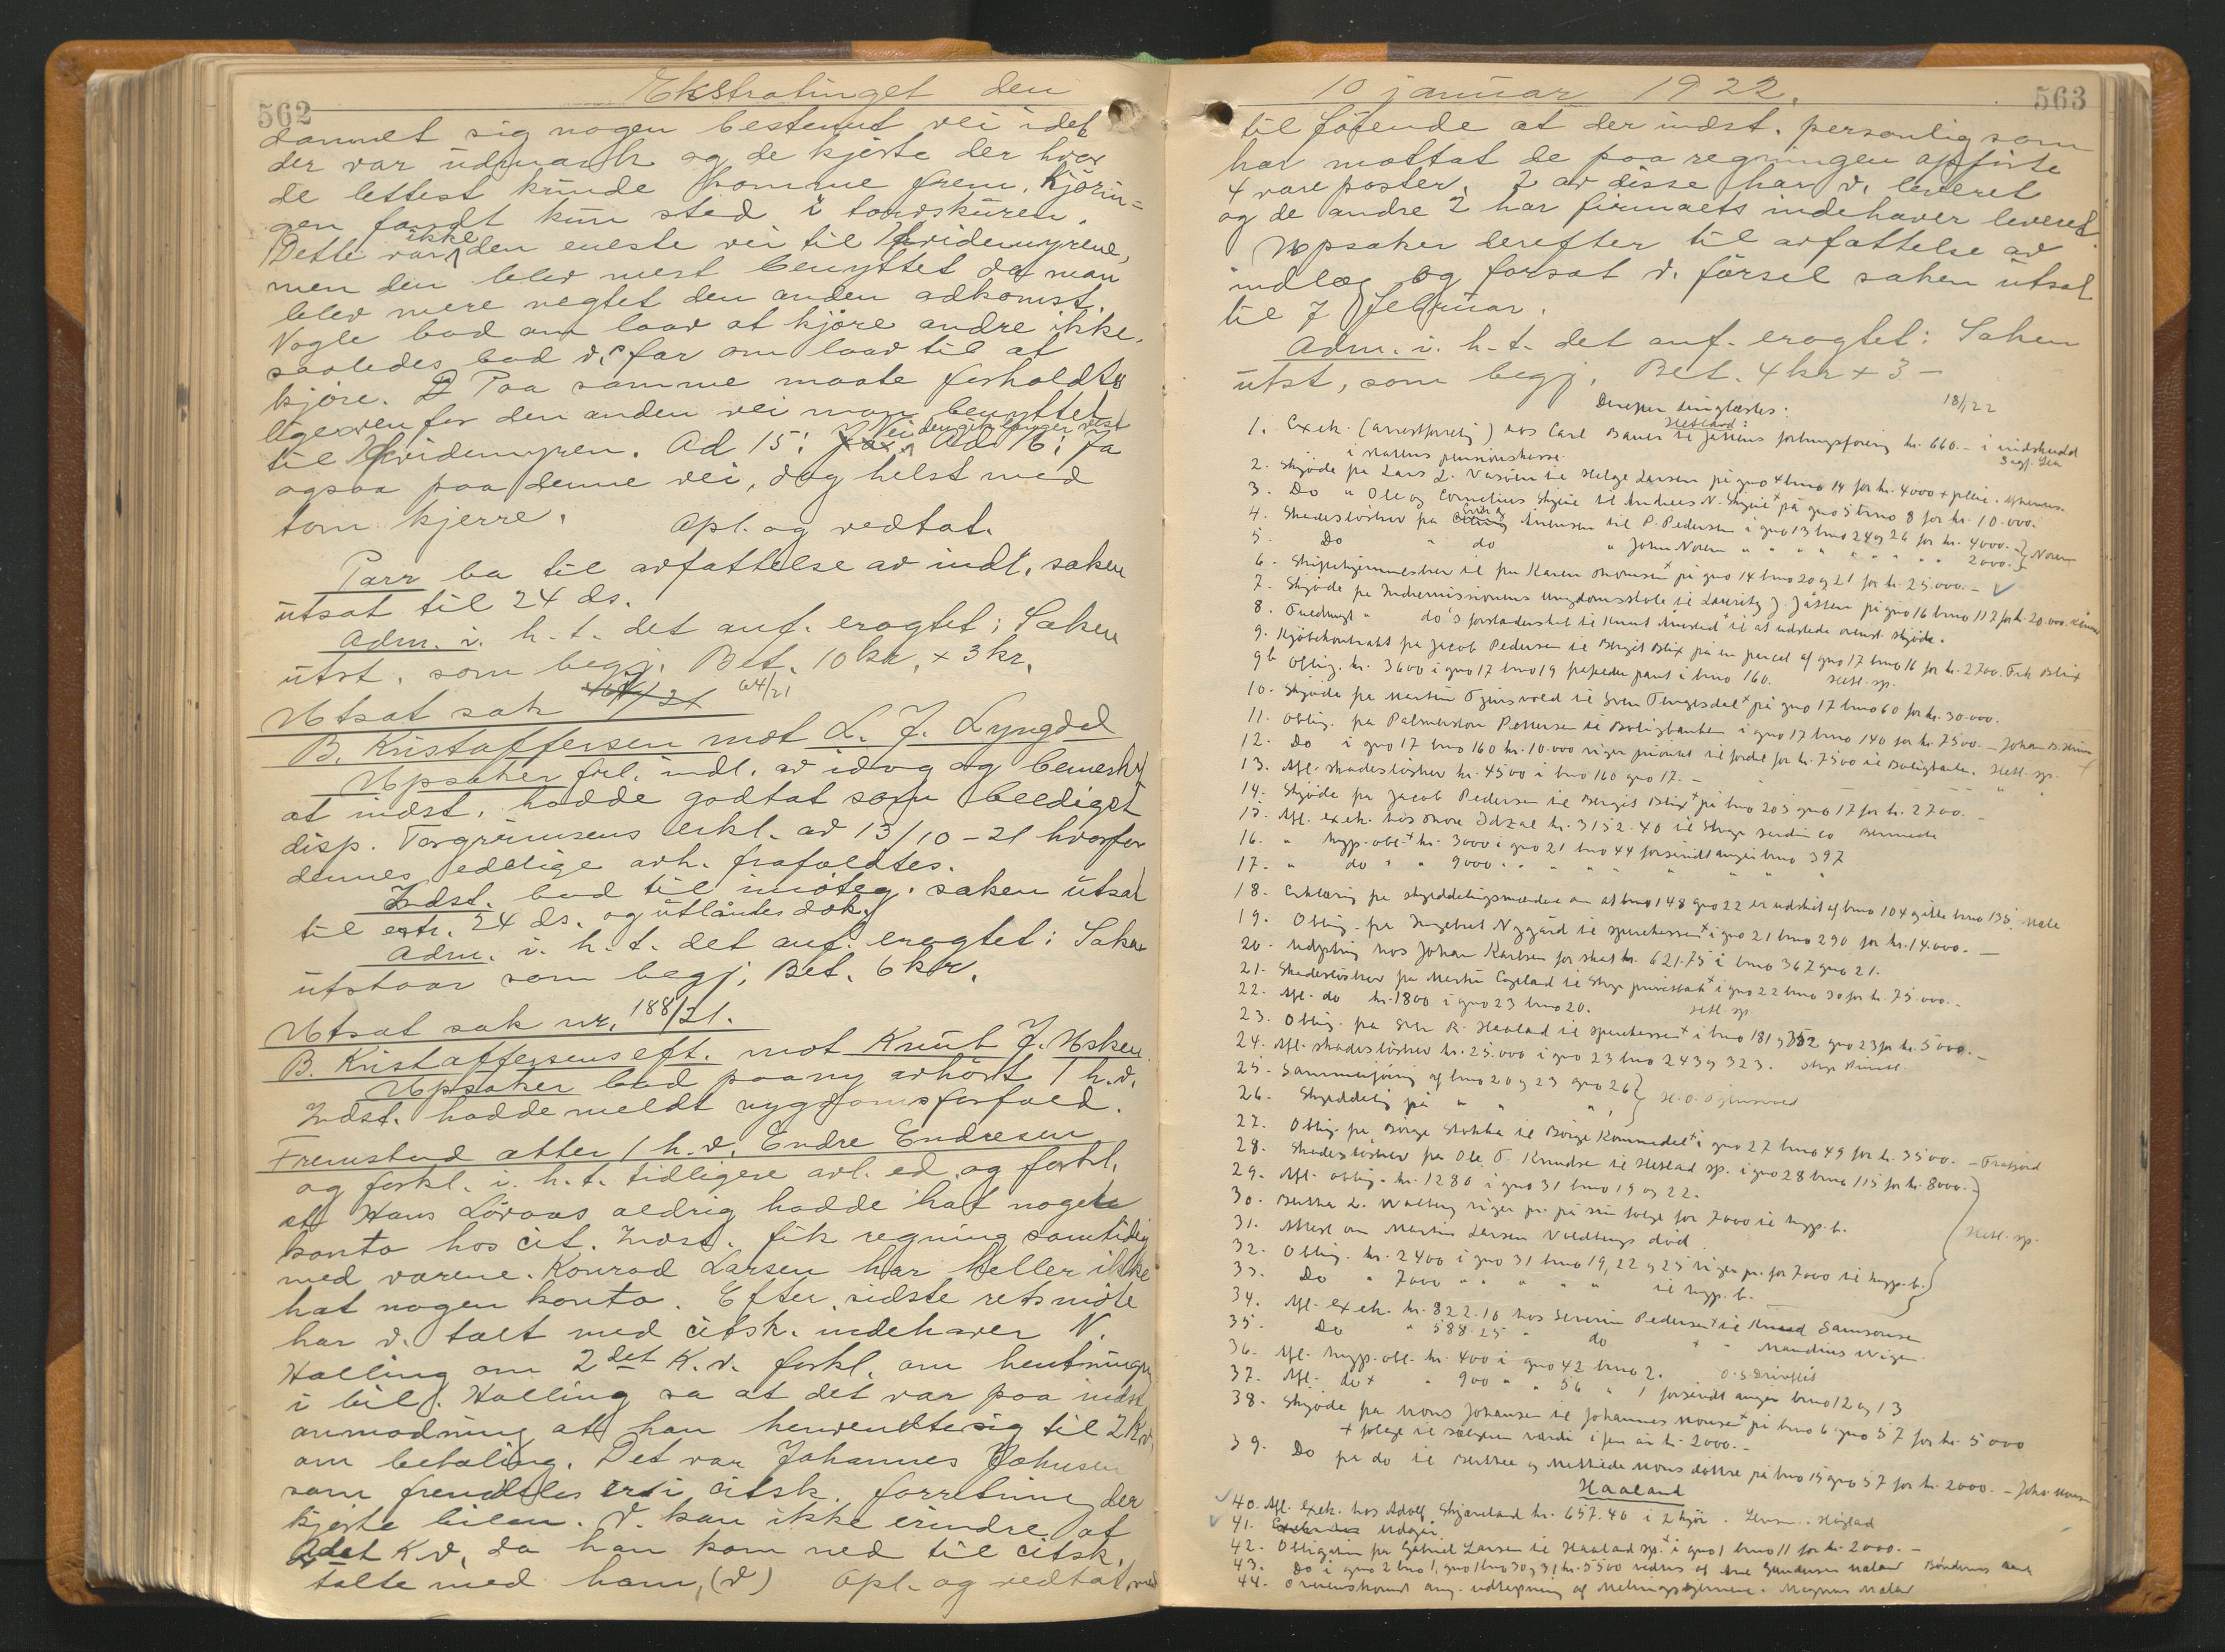 562
Ekstratinget den
dannet sig nogen bestemt vei idet
der var udmark og de kjørte der hvor
de lettest kunde komme frem. Kjörin=
gen fandt kun sted i torvskuren.
Dette var ikke den eneste vei til Hvidemyrene,
men den blev mest benyttet da man
blev mere negtet den anden adkomst.
Nogle bad om laav at kjöre andre ikke,
saaledes bad v.s far om laav til at
kjöre. Paa samme maate forholdt
ligesaa den anden vei man benyttet
til Hvidemyren. Ad 15: Nei den gik længer vest Ad 16: Ja
ogsaa paa denne vei, dog helst med
tom kjerre. Opl. og vedtat.
Tarr ba til avfattelse av indl. saken
utsat til 24 ds.
Adm. i. h. t. det anf. eragtet: Saken
utst. som begj. Bet. 10 kr. + 3 kr.
Utsat sak 64/21
B. Kristoffersen mot L. J. Lyngdal
Upsaker frl. indl. av idag og bemerket
at indst. hadde godtat som beediget
disp. Torgrimsens erkl. av 13/10-21 hvorfor
dennes edelige avh. frafaldtes.
Indst. bad til imöteg. saken utsat
til extr. 24 ds. og utlåntes dok.
Adm. i. h. t. det anf. eragtet: Saken
utstaar som begj. Bet. 6 kr.
Utsat sak nr. 188/21.
B. Kristoffersens eft. mot Knut J. Usken.
Upsaker bad paany avhört 1 h.v.
Indst. hadde meldt sygdomsforfald.
Fremstod atter 1 h.v. Endre Endresen
og forkl. i. h. t. tidligere avl. ed og forkl.
at Hans Lövaas aldrig hadde hat nogen
konto hos cit. Indst. fik regning samtidig
med varene. Konrad Larsen har heller ikke
hat nogen konto. Efter sidste retsmöte
har v. talt med citsk. indehaver N.
Halling om 2det K.v. forkl. om hentningen
i bil. Halling sa at det var paa indst.
anmodning at han henvendte sig til 2 K.v.
om betaling. Det var Johannes Johnsen
som fremdeles er i citsk. forretning der
kjörte bilen. V. kan ikke erindre at
2det K.v. da han kom ned til citsk.
talte med ham, (v) Opl. og vedtat
563
10 januar 1922.
til förende at der indst. personlig som
har mottat de paa regningen opförte
4 vareposter. 2 av disse har v. leveret
og de andre 2 har firmaets indehaver leveret.
Upsaker derefter til avfattelse av
indlæg og forsat v. försel saken utsat
til 7 februar.
Adm. i. h. t. det anf. eragtet: Saken
utst, som begj. Bet. 4 kr + 3 –
Derefter tinglæstes: 18/1 22
Hetland:
1. Exek. (arrestforretn.) hos Carl Bauer til Jåttens forbrugsforening kr. 660.– i indskudd
i statens pensionskasse.
2. Skjöde fra Lars L. Vasöen til Helge Larsen på gno 4 bno 14 for kr. 4000 + pleie.
3. Do " Ole og Cornelius Skjeie til Andreas N. Skjeie på gno 5 bno 8 for kr. 10.000.
4. Skadeslösbrev fra Antonsen til P. Pedersen i gno 13 bno 24 og 26 for kr. 4000.– Noren
5. Do " do " John Noren " " " " " " 2000.–
6. Skiftehjemmelsbrev til fru Karen Thomsen på gno 14 bno 20 og 21 for kr. 25.000.–
7. Skjöde fra Indremissionens ungdomsskole til Lauritz J. Jåtten på gno 16 bno 112 for kr. 20.000.
8. Fuldmagt " do's forstanderskab til Knut til at udstede ovenst. skjöde.
9. Kjöbekontrakt fra Jacob Pedersen til Bergit Blix på en parcel af gno 17 bno 16 for kr. 2700. Frk Blix
9b Oblig. kr. 3600 i gno 17 bno 19 frafaldes pant i bno 160. Hetl. sp.
10. Skjöde fra Martin Tjensvold til Sven Tengesdal på gno 17 bno 60 for kr. 30.000.
11. Oblig. fra Palmerston Pettersen til Boligbanken i gno 17 bno 140 for kr. 7500.–
12. Do i gno 17 bno 160 kr. 10.000 viger prioritet til fordel for kr. 7500 til Boligbanken. Hetl. sp.
13. Afl. skadeslösbrev kr. 4500 i bno 160 gno 17.–
14. Skjöde fra Jacob Pedersen til Bergit Blix på bno 203 gno 17 for kr. 2700.–
15. Afl. exek. hos Thore Idzal kr. 3152.40 til Stvgr sardin co
16. " hyp. obl. kr. 3000 i gno 21 bno 44 forsåvidt angår bno 397
17. " do " " 9000 " " " " " " "
18. Erklæring fra skylddelingsmændene om at bno 148 gno 22 er udskilt af bno 104 og ikke bno 135.
19. Oblig. fra Ingebret Nygård til sparekassen i gno 21 bno 290 for kr. 14.000.–
20. Udpanting hos Johan Karlsen for skat kr. 621.75 i bno 367 gno 21.
21. Skadeslösbrev fra Martin Capeland til Stvgr privatbank i gno 22 bno 30 for kr. 75.000.–
22. Afl. do kr. 1800 i gno 23 bno 20. Hetl. sp.
23. Oblig. fra R. Haaland til sparekassen i bno 181 og 352 gno 23 for kr. 5000.–
24. Afl. skadeslösbrev kr. 25.000 i gno 23 bno 243 og 323.
25. Sammenföining af bno 20 og 23 gno 26
26. Skylddeling på " " "
27. Oblig. fra Börge Stokka til Börge Kommedal i gno 27 bno 49 for kr. 3500.– Trafjord
28. Skadeslösbrev fra Ole T. Knudsen til Hetland sp. i gno 28 bno 115 for kr. 8000.–
29. Afl. oblig. kr. 1280 i gno 31 bno 19 og 22.
30. Bertha L. viger pr. på sin folge for 7000 til hyp. b.
31. Attest om Martin Larsen død.
32. Oblig. kr. 2400 i gno 31 bno 19, 22 og 25 viger pr. for 7000 til hyp. b.
Hetl. sp.
33. Do " 7000 " " " " " til hyp. b.
34. Afl. exek. kr. 822.10 hos Severin Pedersen til Samsonsen
35. Do " 588.25 " do " Mandius Wigen
36. Afl. hyp. obl. kr. 400 i gno 42 bno 2.
37. Afl. do " 900 " " 56 " 1 forsåvidt angår bno 12 og 13
38. Skjöde fra Mons Johansen til Johannes Monsen på bno 6 gno 57 for kr. 5000
+ folge til værdi i fem år kr. 2000.–
39. Do fra do til Berthe og Monsdöttre på bno 15 gno 57 for kr. 2000.–
Haaland
40. Afl. exek. hos Adolf Skjæveland kr. 657.40 i 2 kjör.
41. Udgår.
42. Obligation fra Gabriel Larsen til Haaland sp. i gno 1 bno 11 for kr. 2000.–
43. Do i gno 2 bno 1, gno 1 bno 30 og 31 kr. 5500 Gundersen
44. Overenskomst ang.